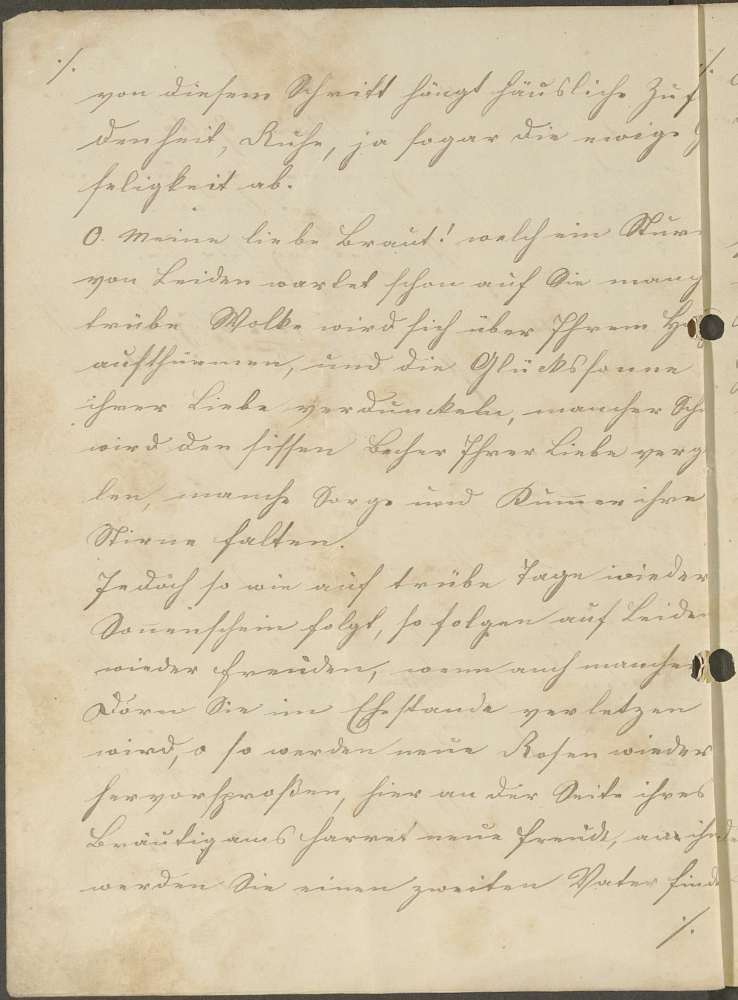 ·/.
von diesem Schritt hängt häusliche Zuf
denheit, Ruhe, ja sogar die ewige
seligkeit ab.
O. Meine liebe Braut! welch ein Stur
von Leiden wartet schon auf Sie manch
trübe Wolke wird sich über Ihrem
aufthürmen, und die Glückssonne
ihrer Liebe verdunckeln, mancher
wird den sissen Becher Ihrer Liebe verg
len, manche Sorge und Kum̅er ihre
Stirne falten.
Jedoch so wie auf trübe Tage wieder
Son̅enschein folgt, so folgen auf Leide
wieder Freuden, wenn auch mancher
Dorn Sie im Ehestande verletzen
wird, o so werden neue Rosen wieder
hervorsproßen, hier an der Seite ihres
Bräutigams harret neue Freude, an
werden Sie einen zweiten Vater finde
·/.